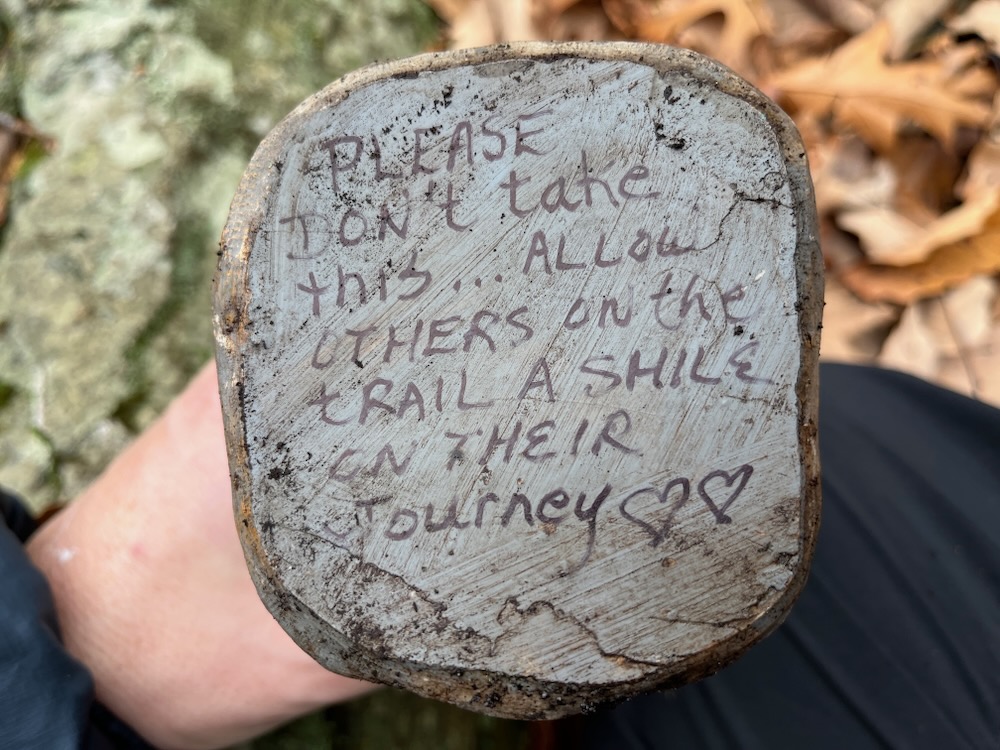 PLEASE
DON't take
this... ALLOW
OTHERS ON the
tRAIL A SMILE
ON THEIR
Journey ♡♡